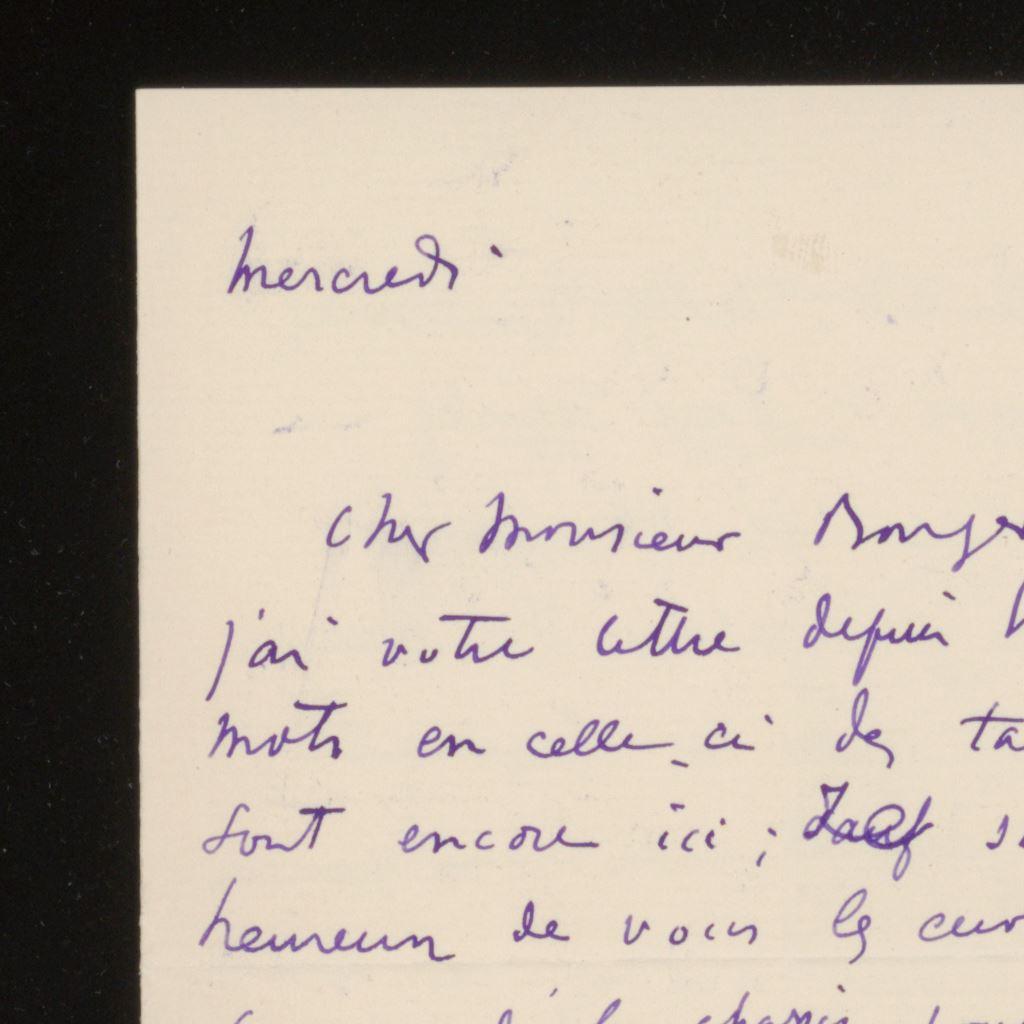 Mercredi
Cher Monsieur Bonger
j'ai votre lettre depuis
mots en celle-ci des ta
sont encore ici ; sauf
heureux de vous les